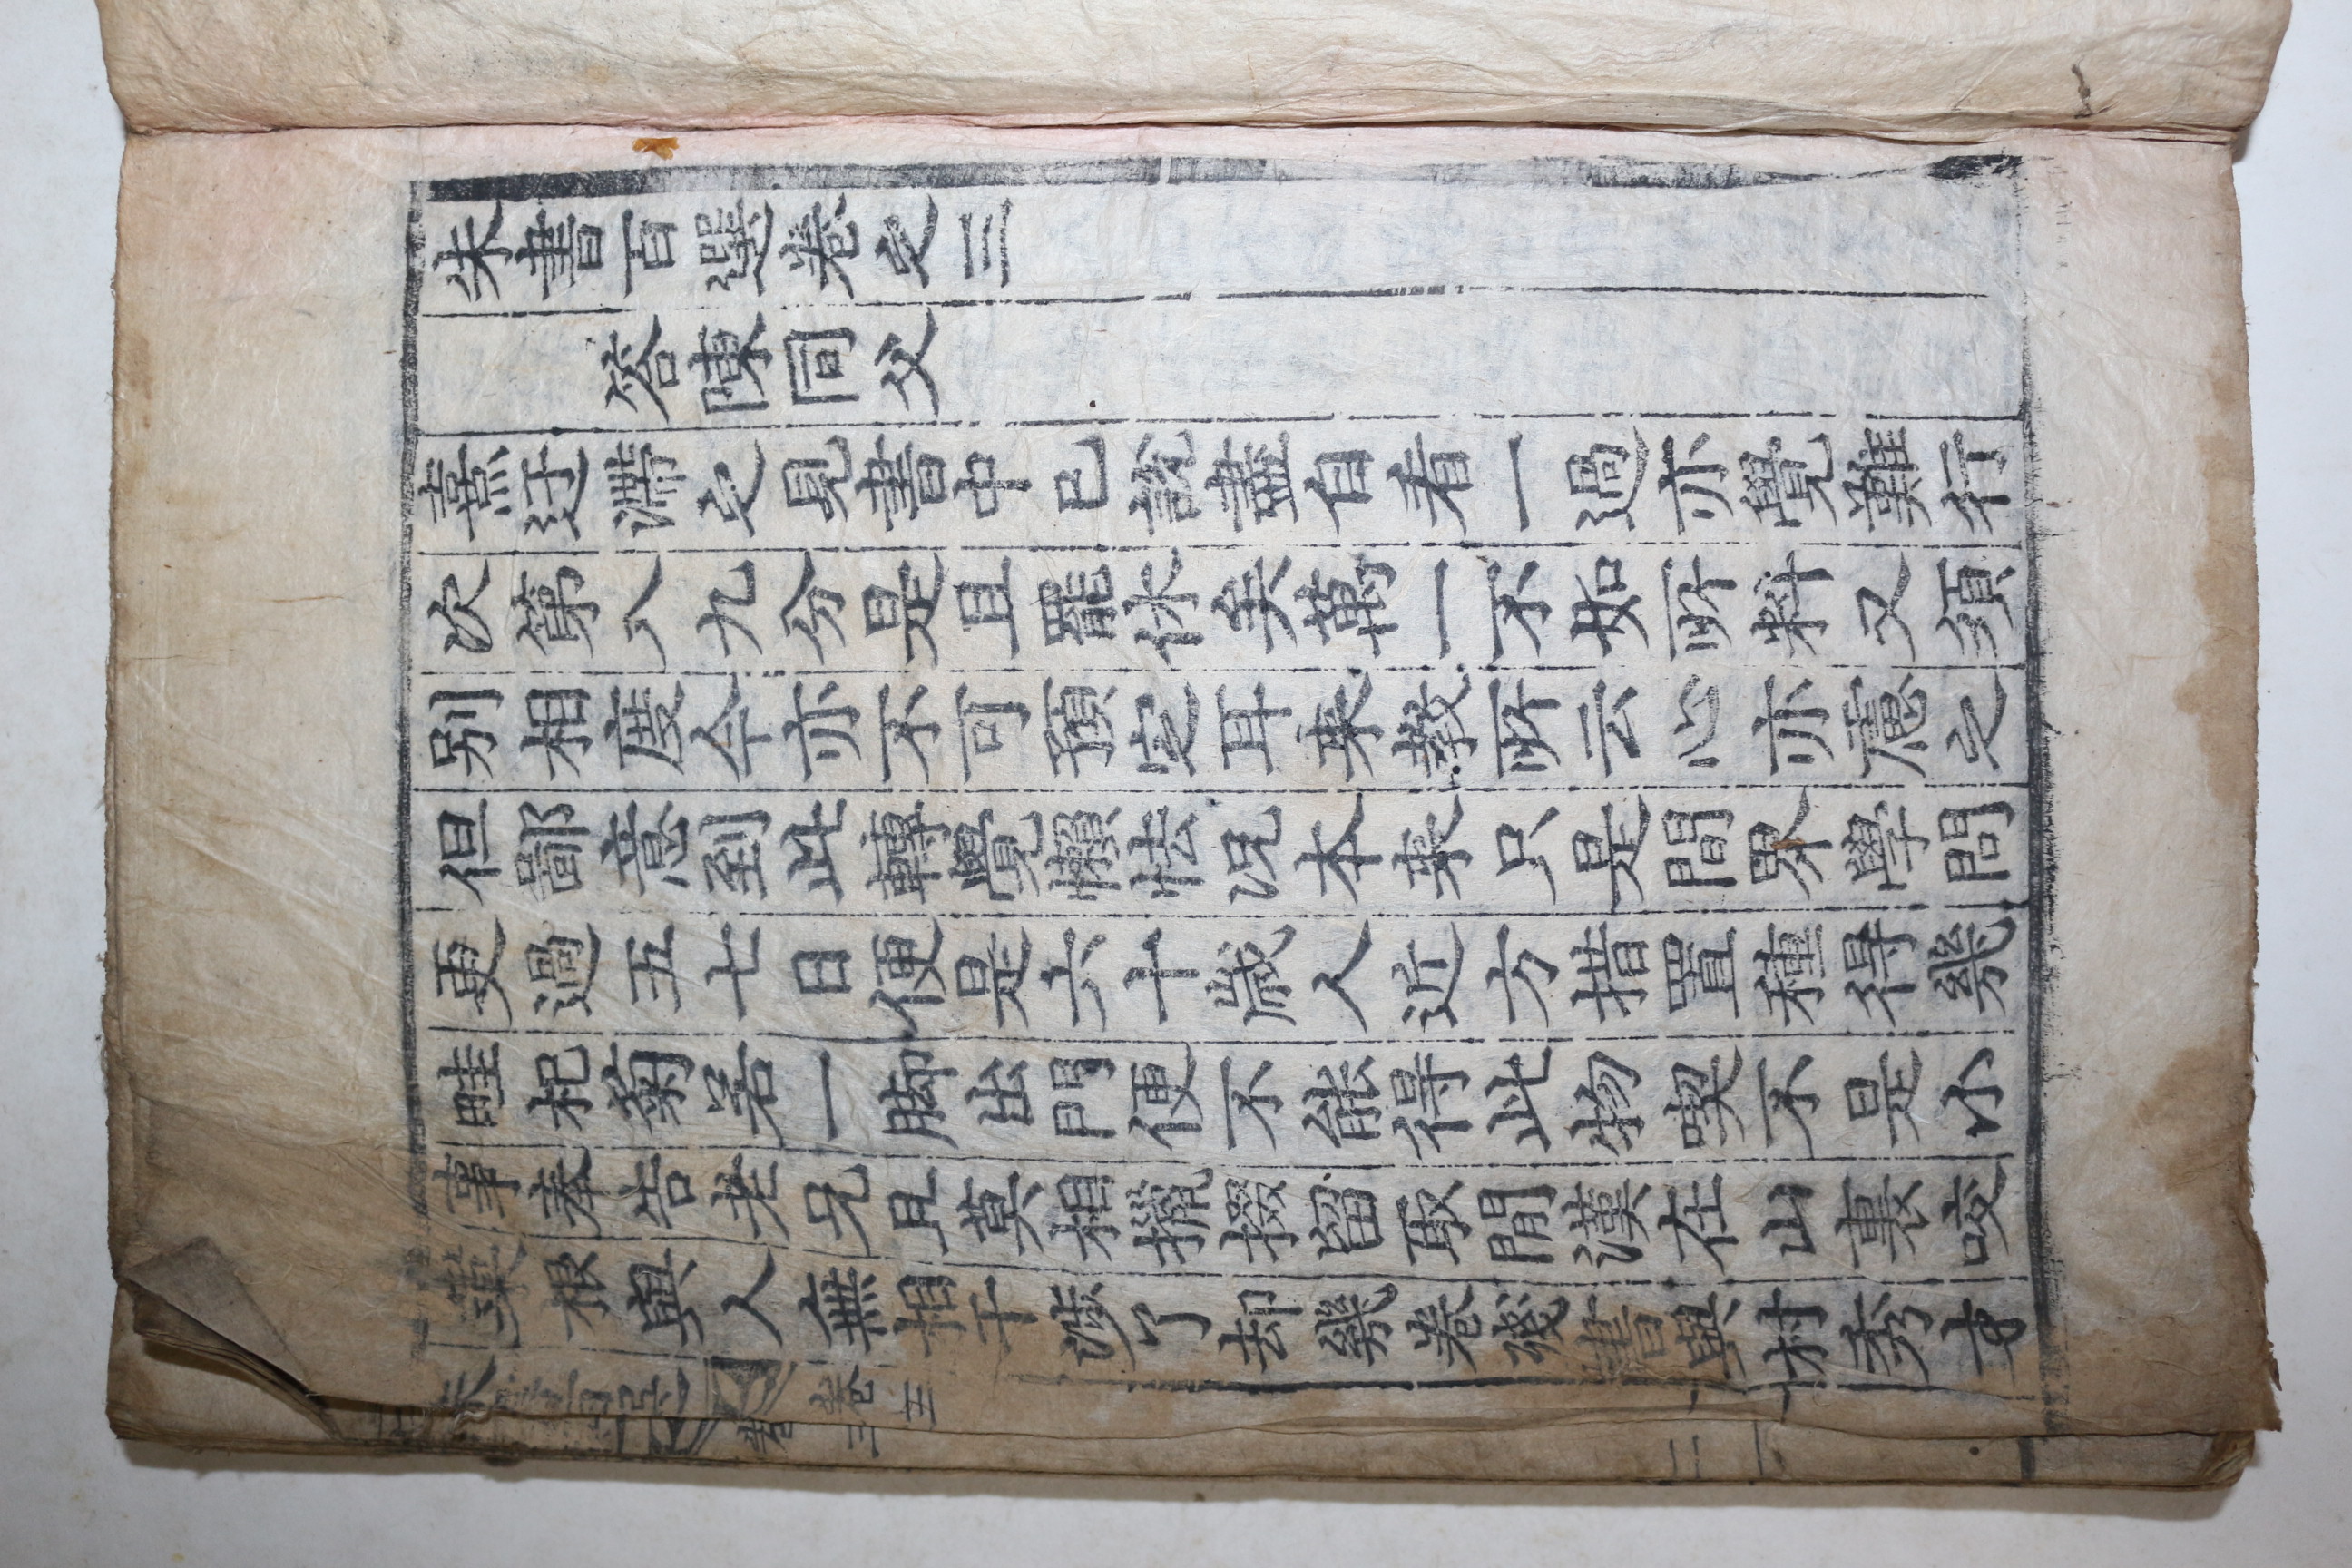 朱書百選卷之三
答陳同父
熹迂滯之見書中已說盡自看一過亦覺難行
次第八九分是且罷休矣萬一不如所料又須
別相度今亦不可預定耳来教所云心亦慮之
但鄙意到此轉覺懶怯况本来只是間界學問
更過五七日便是六十歲人近方措置種得幾
畦杞菊若一脚出門便不能得此物喫不是小
事奉告老兄且莫相攛掇留取閒漢在山裏咬
菜根與人無相干涉了却幾卷殘書與村秀才
朱書百選
卷三
卷三
二